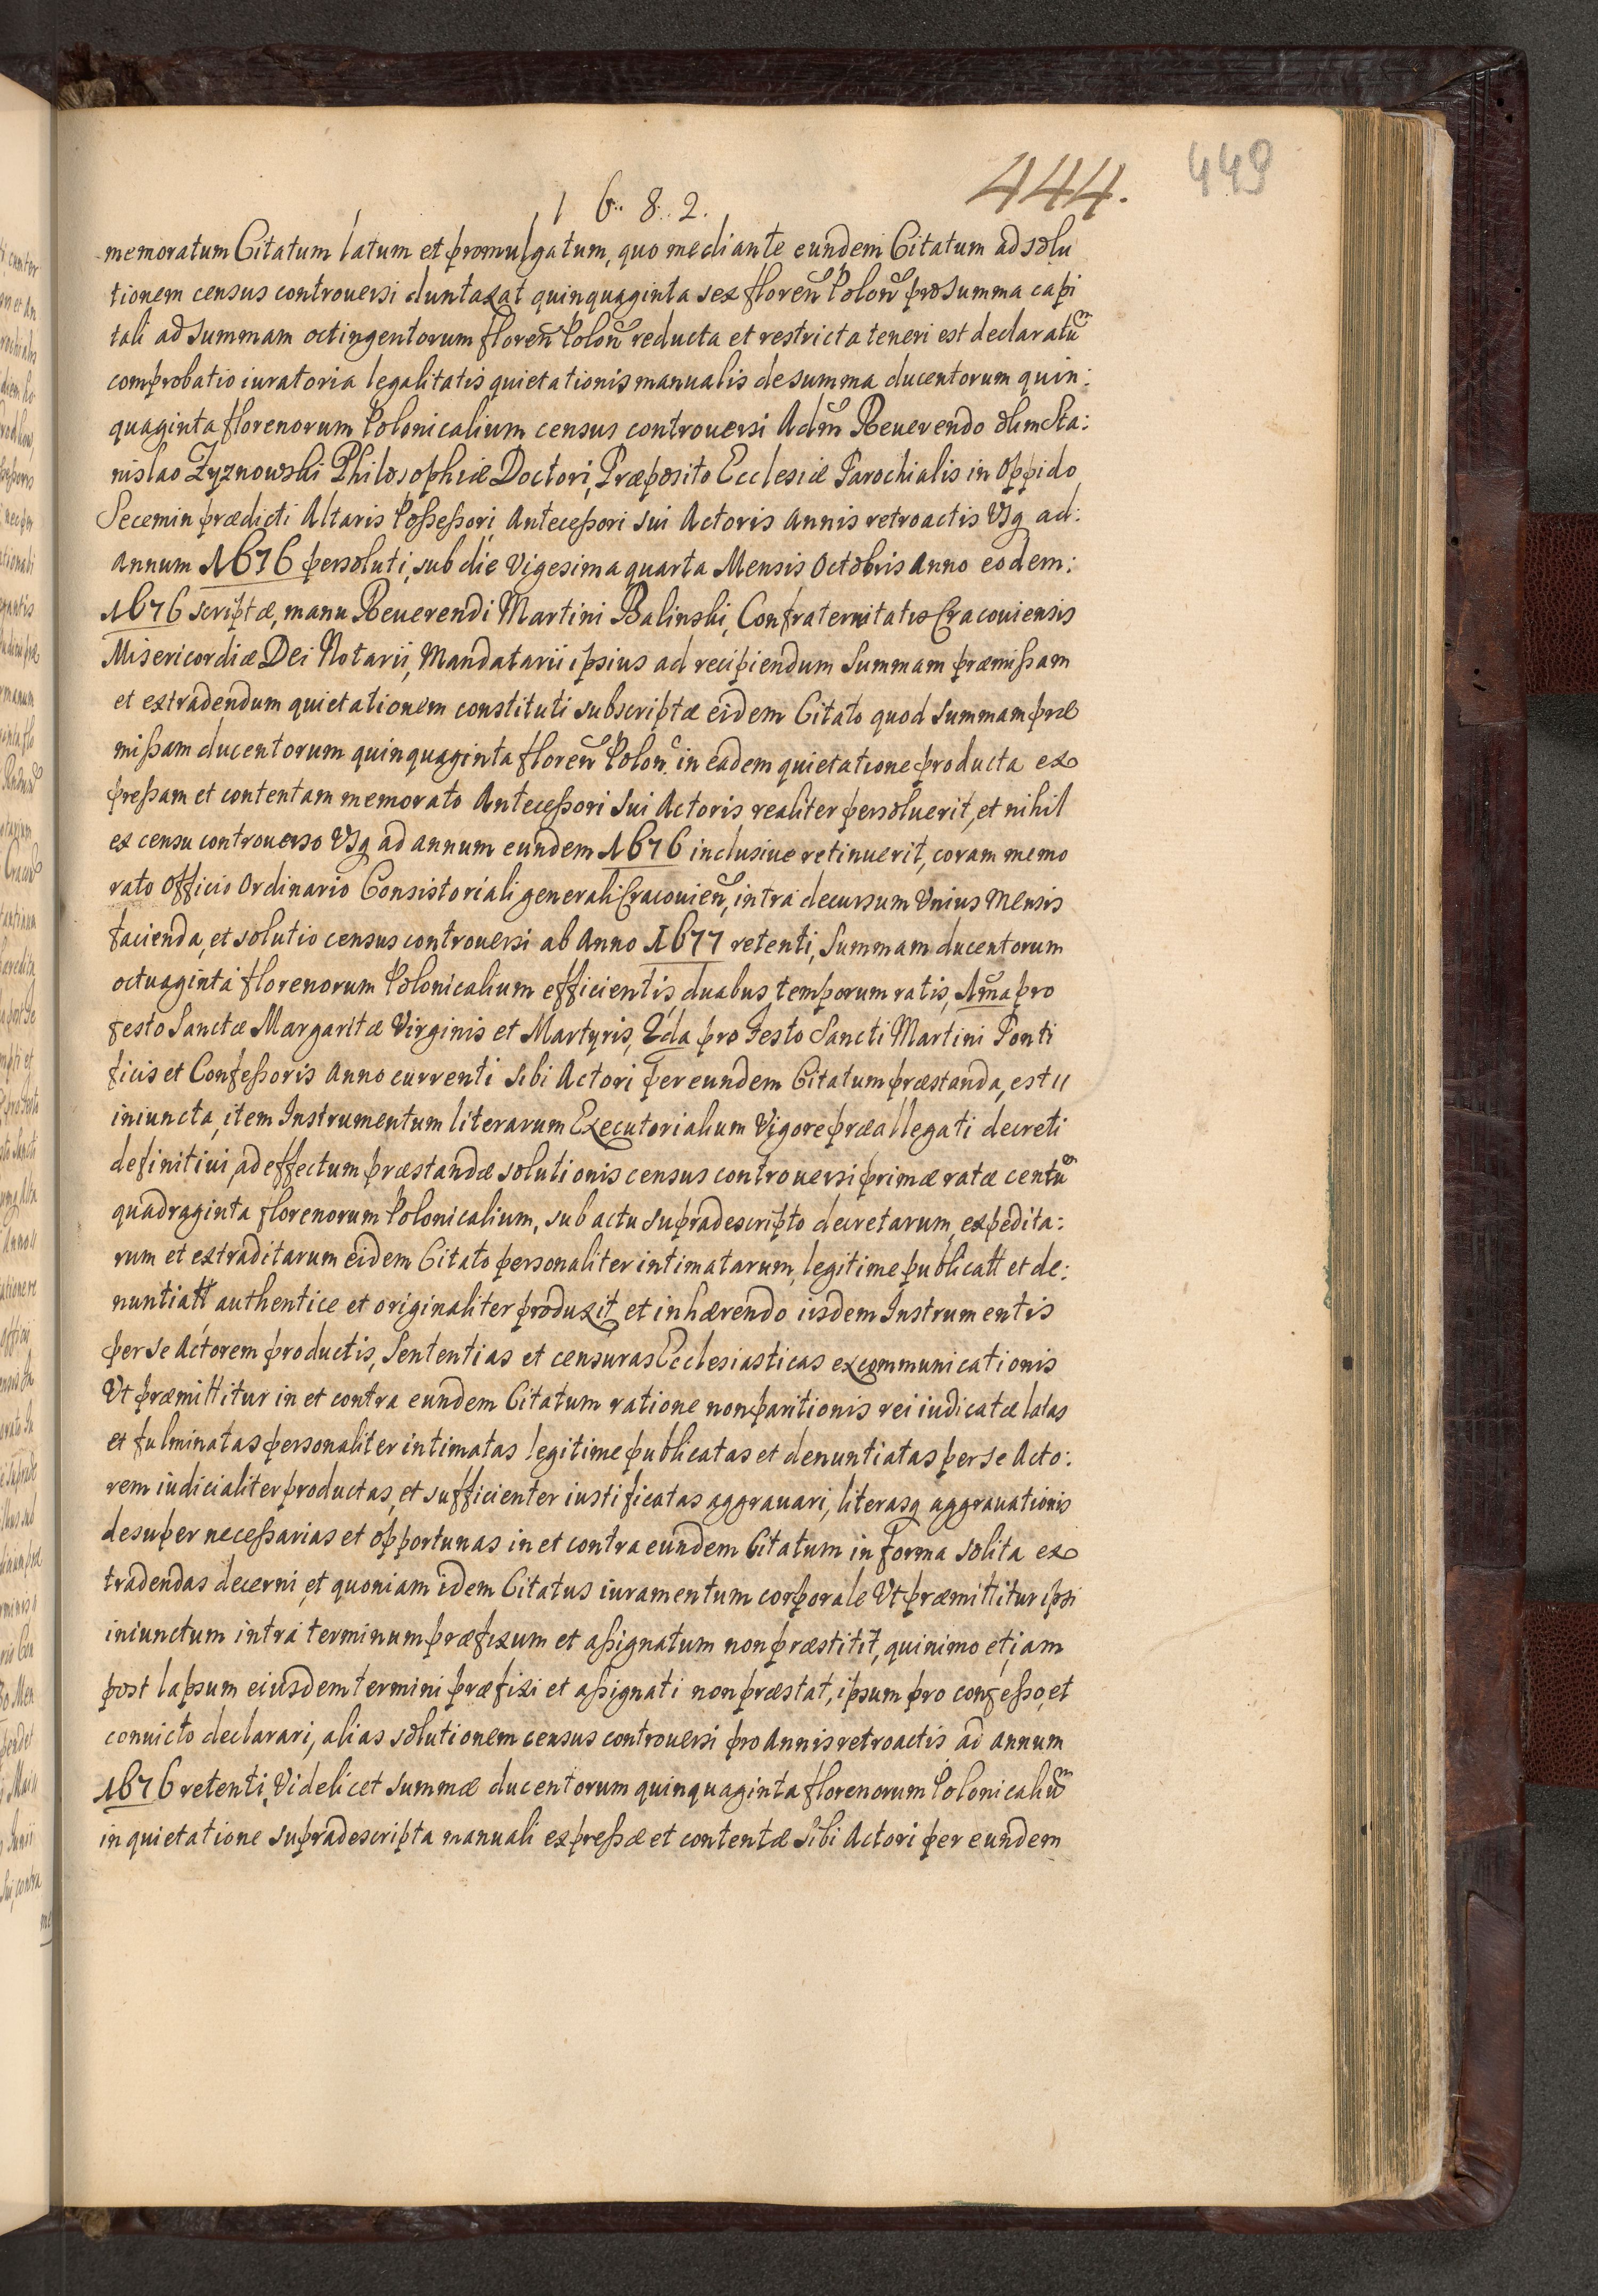 444.
449
1 6.. 8.. 2.
memoratum Citatum latum et promulgatum, quo mediante eundem Citatum ad solu
tionem census controuersi duntaxat quinquaginta sex floreñ Poloñ pro Summa capi
tali ad Summam octingentorum floreñ Poloñ reducta et restricta teneri est declaratũ
comprobatio iuratoria legalitatis quietationis manualis de summa ducentorum quin:
quaginta florenorum Polonicalium census controuersi Adm̃ Reuerendo olim Sta:
nislao Zyznowski Philosophiæ Doctori, Præposito Ecclesiæ Parochialis in Oppido
Secemin prædicti Altaris Possessori, Antecessori sui Actoris annis retroactis Vsq ad:
annum 1676 persoluti, sub die Vigesima quarta Mensis Octobris Anno eodem:
1676 scriptæ, manu Reuerendi Martini Balinski, Confraternitatis Cracouiensis
Misericordiæ Dei Notarii, Mandatarii ipsius ad recipiendum Summam præmissam
et extradendum quietationem constituti subscriptæ eidem Citato quod Summam præ
missam ducentorum quinquaginta floreñ Poloñ. in eadem quietatione producta ex
pressam et contentam memorato Antecessori sui Actoris realiter persoluerit, et nihil
ex censu controuerso Vsq ad annum eundem 1676 inclusiue retinuerit, coram memo
rato Officio Ordinario Consistoriali generali Cracouieñ, intra decursum Vnius Mensis
facienda, et solutio census controuersi ab Anno 1677 retenti, Summam ducentorum
octuaginta florenorum Polonicalium efficientis, duabus temporum ratis, 1m̃a pro
festo Sanctæ Margaritæ Virginis et Martyris, 2da pro Festo Sancti Martini Ponti
ficis et Confessoris Anno currenti sibi Actori per eundem Citatum præstanda, est //
iniuncta, item Instrumentum literarum Executorialium Vigore præallegati decreti
definitiui, ad effectum præstandæ solutionis census controuersi primæ ratæ centũ
quadraginta florenorum Polonicalium, sub actu supradescripto decretarum, expedita:
rum et extraditarum eidem Citato personaliter intimatarum, legitime publicatt et de:
nuntiatt authentice et originaliter produxit, et inhærendo iisdem Instrumentis
per se Actorem productis, Sententias et censuras Ecclesiasticas excommunicationis
Vt præmittitur in et contra eundem Citatum ratione non paritionis rei iudicatæ latas
et fulminatas personaliter intimatas legitime publicatas et denuntiatas per se Acto:
rem iudicialiter productas, et sufficienter iustificatas aggrauari, literasq aggrauationis
desuper necessarias et opportunas in et contra eundem Citatum in forma solita ex
tradendas decerni, et quoniam idem Citatus iuramentum corporale Vt præmittitur ipsi
iniunctum intra terminum præfixum et assignatum non præstitit, quinimo etiam
post lapsum eiusdem termini præfixi et assignati non præstat, ipsum pro confesso, et
conuicto declarari, alias solutionem census controuersi pro Annis retroactis ad annum
1676 retenti, Videlicet summæ ducentorum quinquaginta florenorum Polonicaliũ
in quietatione supradescripta manuali expressæ et contentæ Sibi Actori per eundem